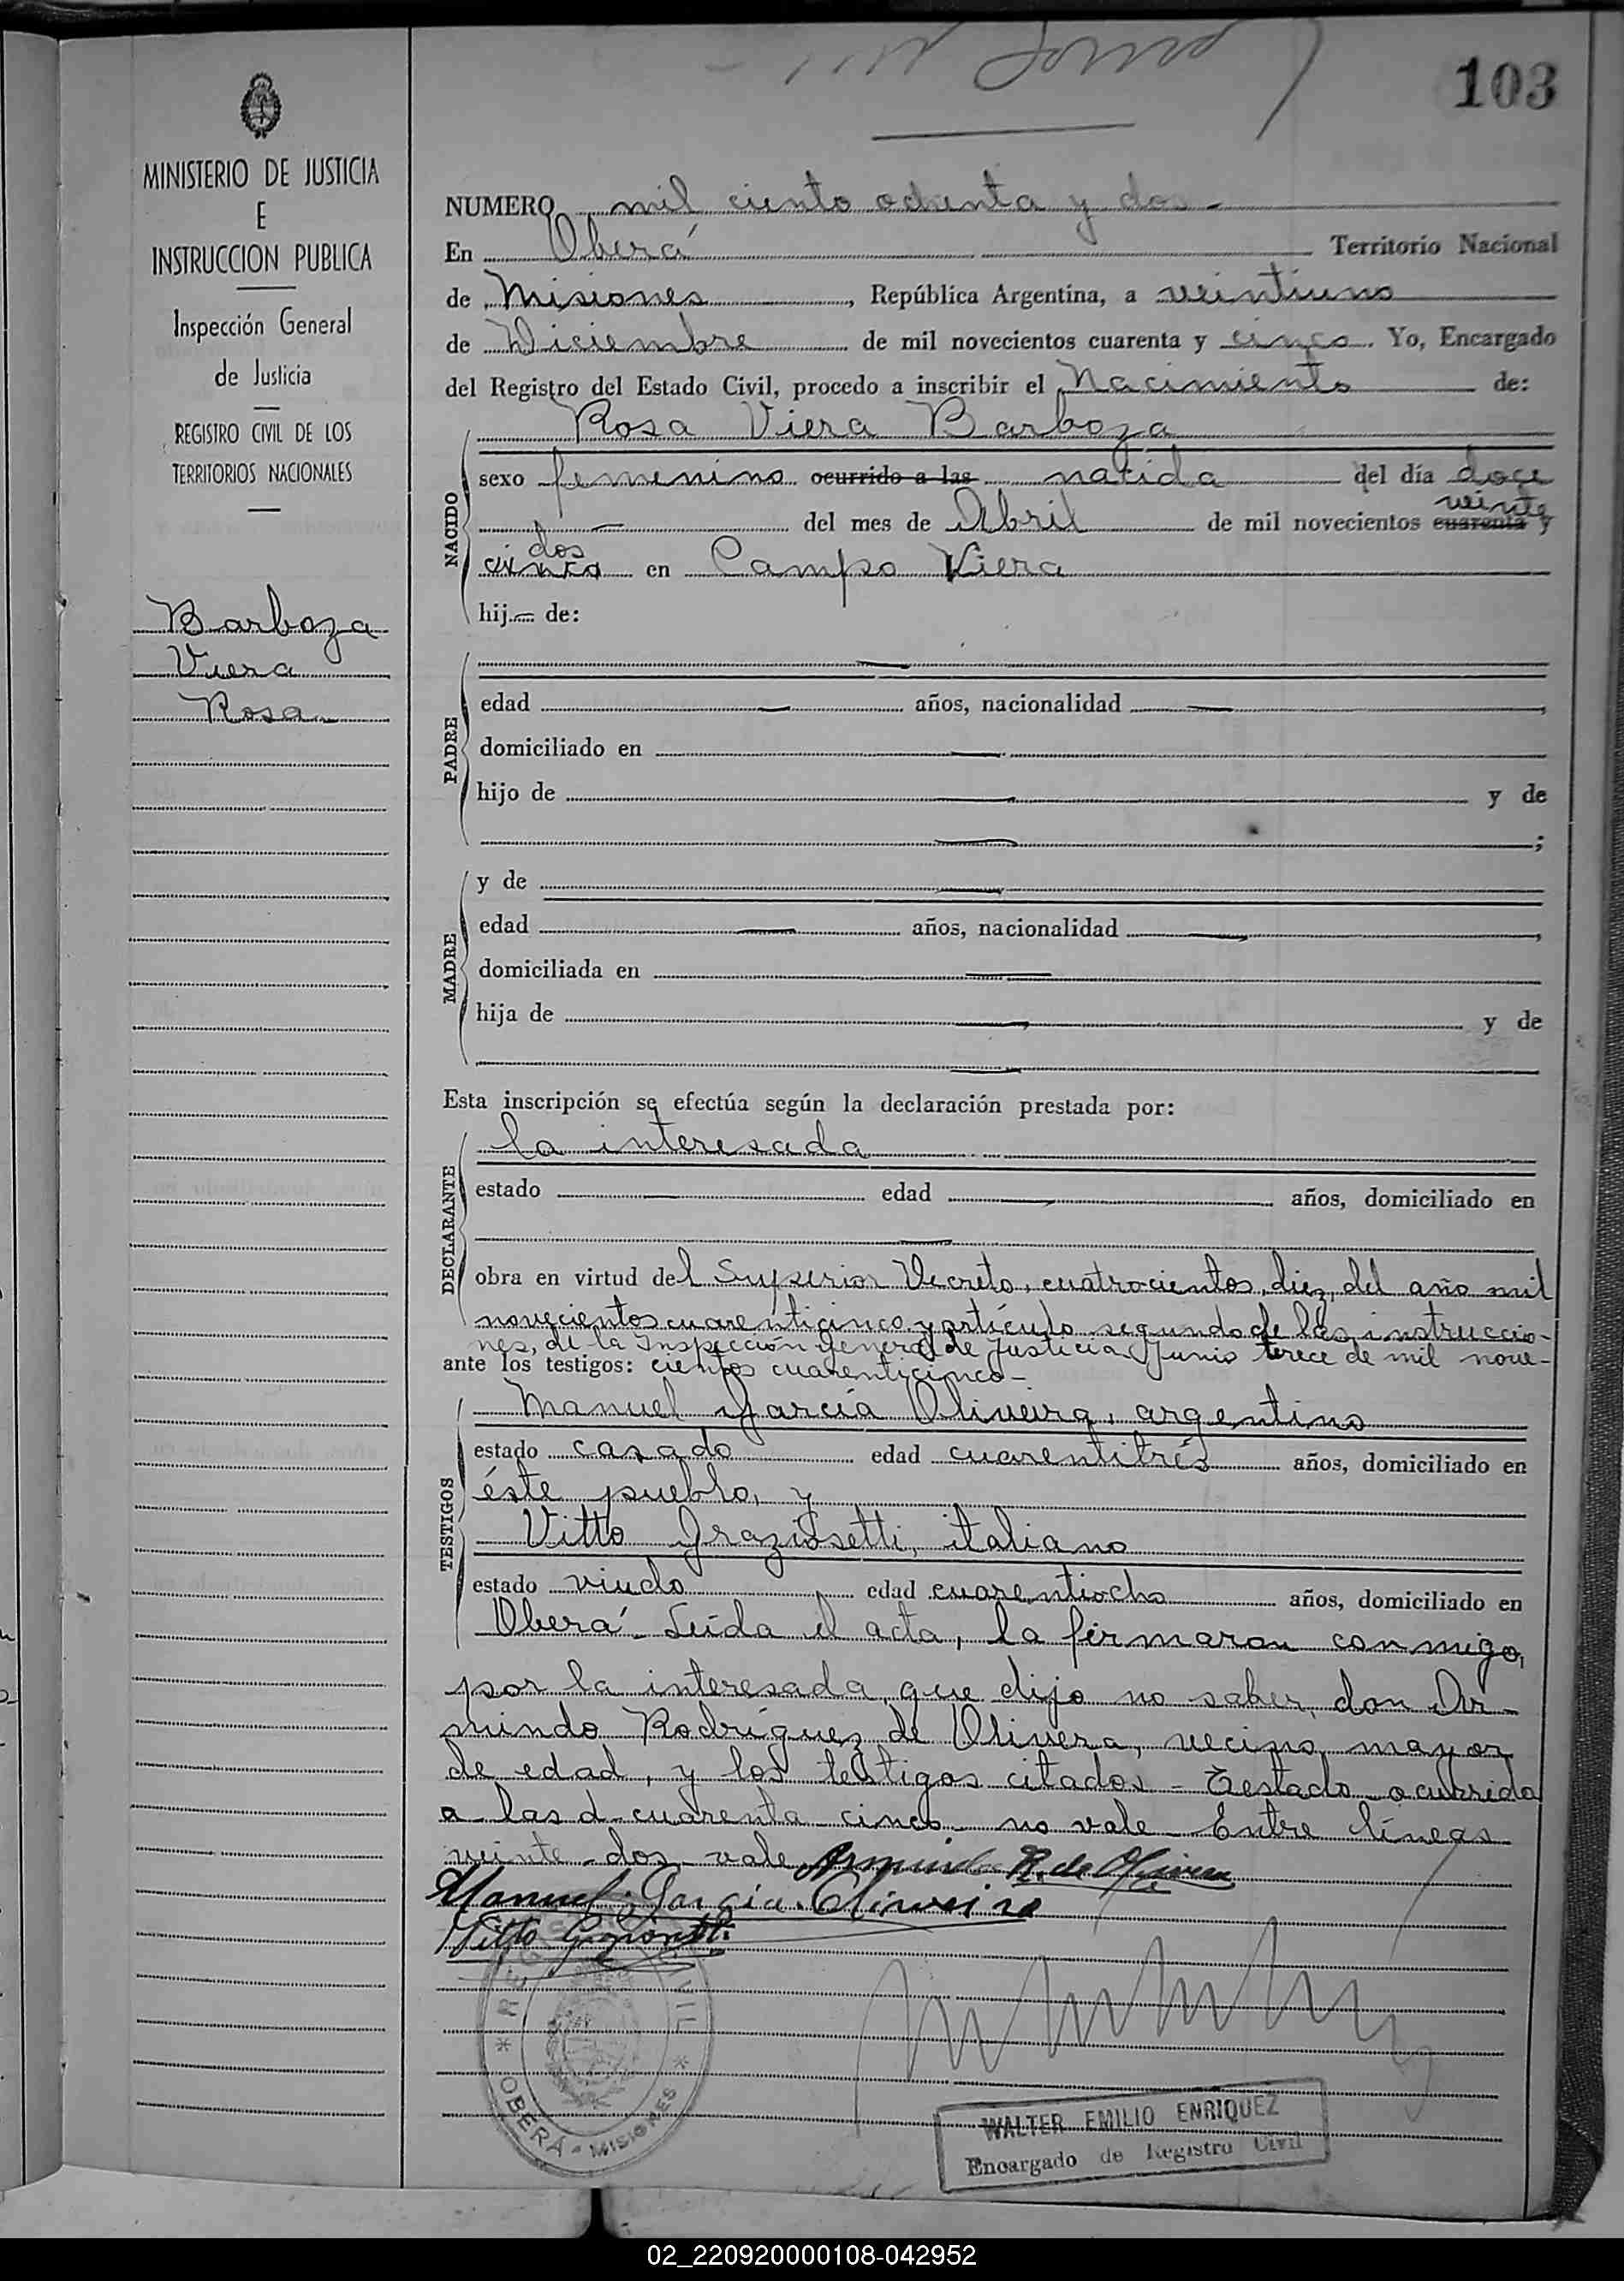 103
MINISTERIO DE JUSTICIA
E
INSTRUCCION PUBLICA
Inspección General
de Justicia
REGISTRO CIVIL DE LOS
TERRITORIOS NACIONALES
Barboza
Viera
Rosa
NUMERO mil ciento ochenta y dos -
En Oberá Territorio Nacional
de Misiones, República Argentina, a veintiuno
de Diciembre de mil novecientos cuarenta y cinco. Yo, Encargado
del Registro del Estado Civil, procedo a inscribir el Nacimiento de:
Rosa Viera Barboza
NACIDO
sexo femenino ocurrido a las nacida del día doce
veinte
— del mes de Abril de mil novecientos cuarenta y
dos
cinco en Campo Viera
hij— de:
PADRE
—
edad — años, nacionalidad —,
domiciliado en —
hijo de — y de
— ;
MADRE
y de —
edad — años, nacionalidad —,
domiciliada en —
hija de — y de
—
Esta inscripción se efectúa según la declaración prestada por:
DECLARANTE
la interesada
estado — edad — años, domiciliado en
—
obra en virtud del Superior Decreto, cuatrocientos diez, del año mil
novecientos cuarenticinco y artículo segundo de las instruccio-
nes, de la Inspección General de Justicia Junio trece de mil nove-
ante los testigos: cientos cuarenticinco -
TESTIGOS
Manuel García Oliveira, argentino
estado casado edad cuarentitrés años, domiciliado en
éste pueblo, y
Vitto Graziosetti, italiano
estado viudo edad cuarentiocho años, domiciliado en
Oberá - Leída el acta, la firmaron conmigo,
por la interesada, que dijo no saber, don Ar-
mindo Rodríguez de Olivera, vecino, mayor
de edad, y los testigos citados - Testado - ocurrido
a las d - cuarenta cinco - no vale - Entre líneas
veinte - dos - vale Armindo R. de Olivera
Manuel García Oliveira
Vitto
REGISTRO CIVIL
* OBERÁ - MISIONES *
WALTER EMILIO ENRIQUEZ
Encargado de Registro Civil
02_220920000108-042952